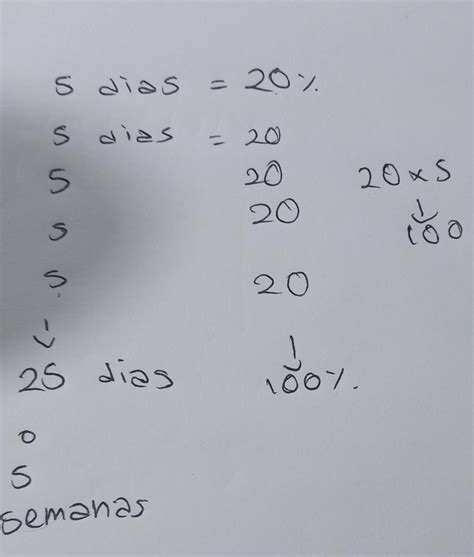 5 dias = 20%
5 dias = 20
5 20 20 x 5
5 20 100
5 20
25 dias 100%.
o
5
semanas